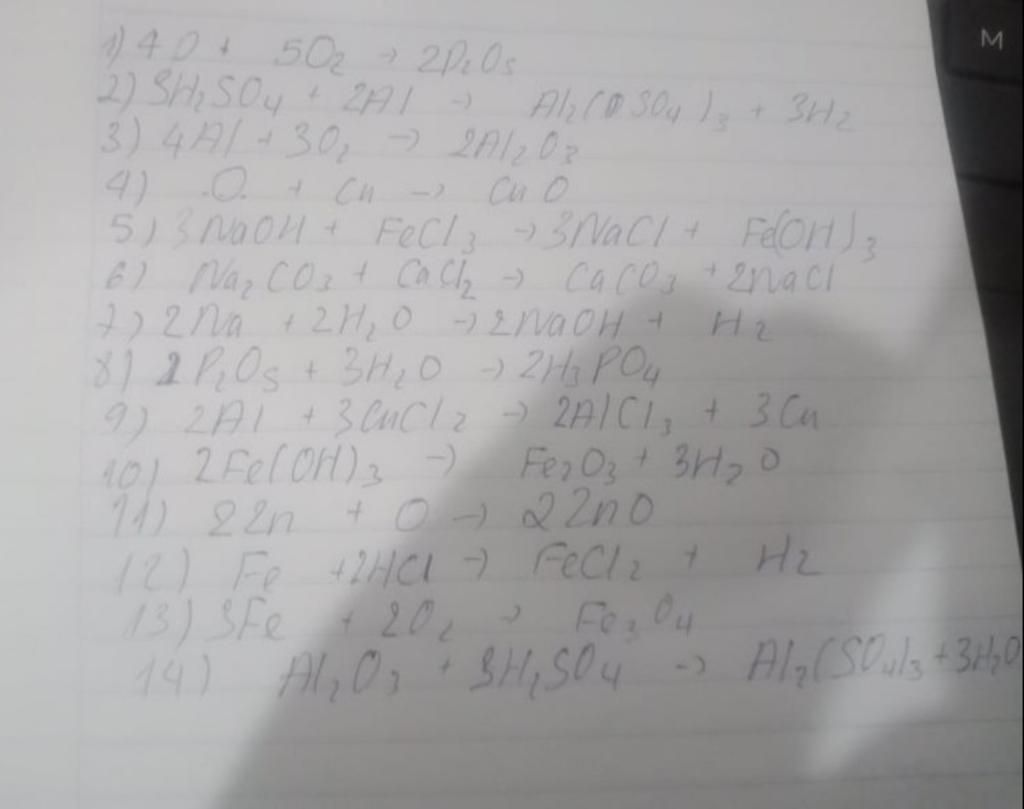 1) 4P + 5O₂ → 2P₂O₅
2) 3H₂SO₄ + 2Al → Al₂(SO₄)₃ + 3H₂
3) 4Al + 3O₂ → 2Al₂O₃
4) O + Cu → CuO
5) 3NaOH + FeCl₃ → 3NaCl + Fe(OH)₃
6) Na₂CO₃ + CaCl₂ → CaCO₃ + 2NaCl
7) 2Na + 2H₂O → 2NaOH + H₂
8) 1P₂O₅ + 3H₂O → 2H₃PO₄
9) 2Al + 3CuCl₂ → 2AlCl₃ + 3Cu
10) 2Fe(OH)₃ → Fe₂O₃ + 3H₂O
11) 2Zn + O → 2ZnO
12) Fe + 2HCl → FeCl₂ + H₂
13) 3Fe + 2O₂ → Fe₃O₄
14) Al₂O₃ + 3H₂SO₄ → Al₂(SO₄)₃ + 3H₂O
M